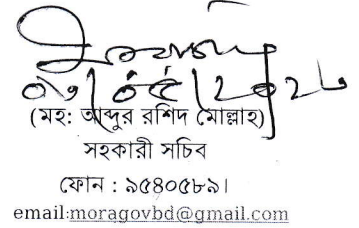 (মহ: আব্দুর রশিদ মোল্লাহ)
সহকারী সচিব
ফোন : ৯৫৪০৫৮৯।
email:moragovbd@gmail.com